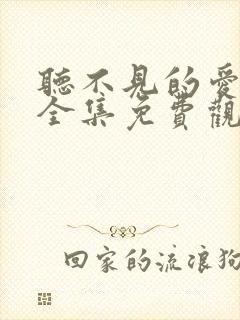 聽不見的愛
全集免費觀
回家的流浪狗